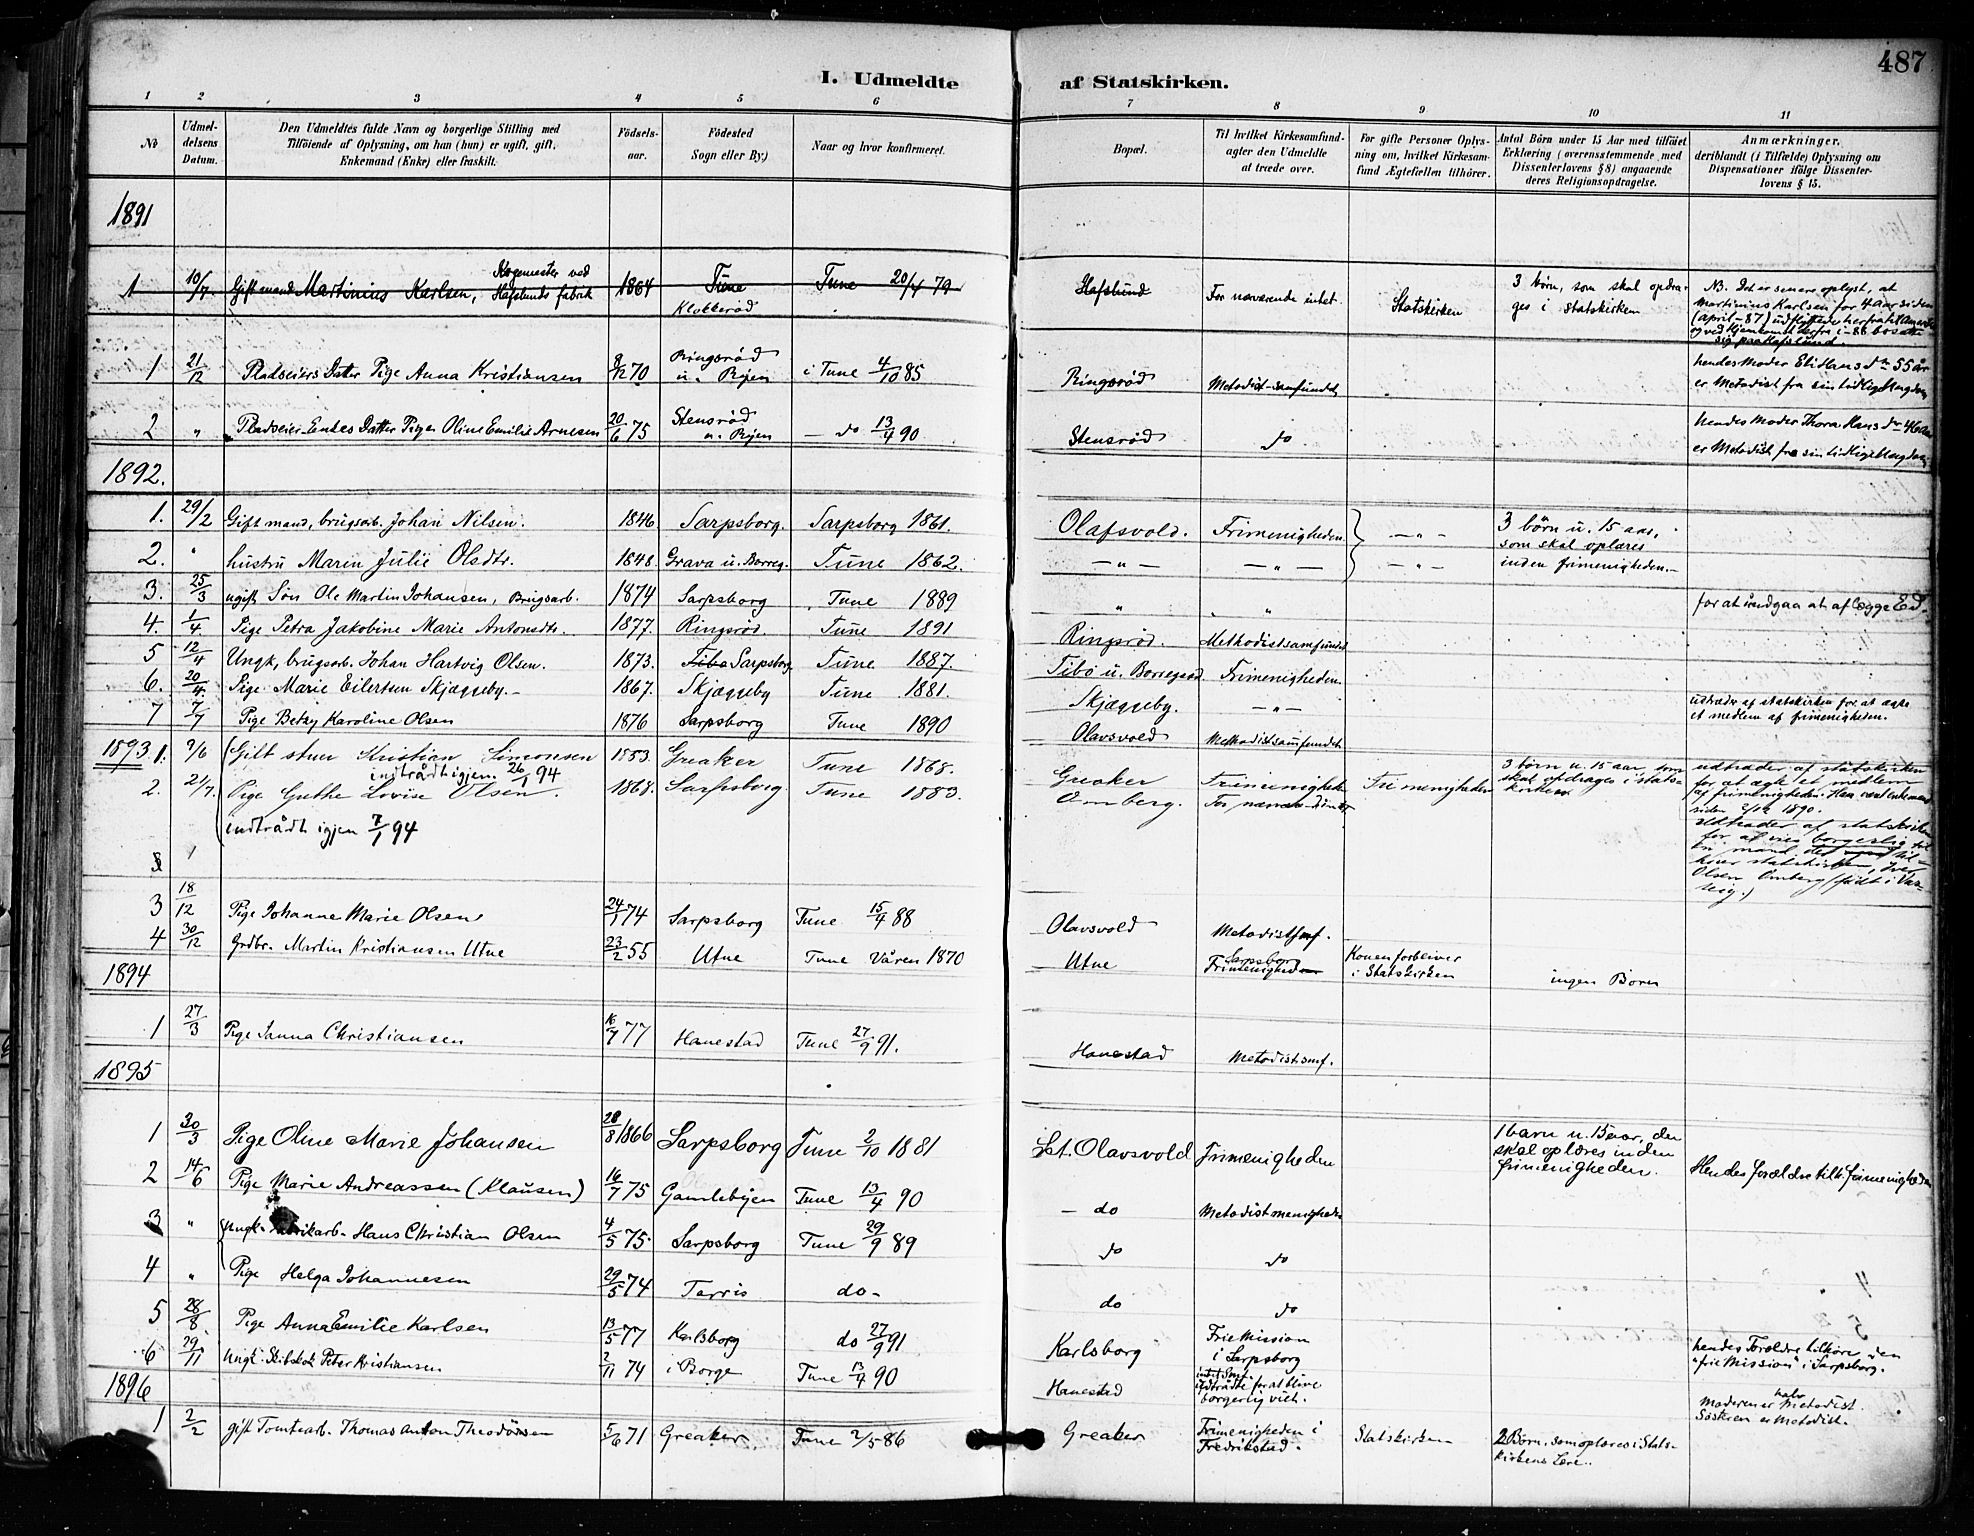 487
I. Udmeldte af Statskirken.
1 2 3 4 5 6 7 8 9 10 11
No
Udmel-
delsens
Datum.
Den Udmeldtes fulde Navn og borgerlige Stilling med
Tilføiende af Oplysning, om han (hun) er ugift, gift,
Enkemand (Enke) eller fraskilt.
Fødsels-
aar.
Fødested
Sogn eller By.)
Naar og hvor konfirmeret.
Bopæl.
Til hvilket Kirkesamfund-
agter den Udmeldte
at træde over.
For gifte Personer Oplys-
ning om, hvilket Kirkesam-
fund Ægtefællen tilhører.
Antal Børn under 15 Aar med tilføiet
Erklæring (overensstemmende med
Dissenterlovens § 8) angaaende
deres Religionsopdragelse.
Anmærkninger.
deriblandt (i Tilfælde) Oplysning om
Dispensationer ifølge Dissenter-
lovens § 15.
1891
1 10/7 Gift mand Martinius Karlsen, Kogemester ved Hafslunds fabrik 1864 Tune Klokkerød Tune 20/4 79 Hafslund For nærværende intet. Statskirken
3 børn, som skal opdra-
ges i statskirken
NB. Det er senere oplyst, at
Martinius Karlsen for 4 aar siden
(april -87) udflyttede herfra til Amerika
og ved Hjemkomst derfra i -88 bosatte
sig paa Hafslund.
1 21/12 Pladseiers Datter Pige Anna Kristiansen 8/12 70 Ringsrød u. Bøjen i Tune 4/10 85 Ringsrød Metodist-samfundet
hendes Moder Eli Hansdr 55 år
er Metodist fra sin tidlige Ungdom
2 " Pladseier-Enkes Datter Pigen Oline Emilie Arnesen 20/6 75 Stensrød u. Bøjen - do 13/4 90 Stensrød do
hendes Moder Thora Hansdr 46 aar
er Metodist fra sin tidlige Ungdom
1892.
1. 29/2 Gift mand, brugsarb. Johan Nilsen. 1846 Sarpsborg. Sarpsborg 1861. Olafsvold. Frimenigheden - " -
3 børn u. 15 aar,
som skal oplæres
inden frimenigheden.-
2. " hustru Maren Julie Olsdtr. 1848. Grava u. Borreg. Tune 1862. - " - - " - - " -
3. 25/3 ugift Søn Ole Martin Johansen, Brugsarb. 1874 Sarpsborg Tune 1889 " " for at undgaa at aflægge Ed.
4. 1/4. Pige Petra Jakobine Marie Antonsdtr. 1877. Ringsrød. Tune 1891 Ringsrød. Methodistsamfundet
5 12/4 Ungk, brugsarb. Johan Hartvig Olsen. 1873. Tibo Sarpsborg Tune 1887. Tibo u. Borregaard Frimenigheden.
6. 20/4. Pige Marie Eilertsen Skjæggeby.- 1867. Skjæggeby Tune 1881. Skjæggeby. - " -
udtræder af statskirken for at ægte
et medlem af frimenigheden.
7 7/7 Pige Betzy Karoline Olsen 1876 Sarpsborg Tune 1890 Olavsvold Methodistsamfundet
1893. 1. 9/6 Gift stuer Kristian Simonsen 1853. Greaker Tune 1868. Greaker Frimenigheden Frimenigheden
indtrådt igjen 26/1 94
3 børn u. 15 aar, som
skal opdrages i stats-
kirken
udtræder af statskirken
for at ægte et medlem
af frimenigheden. Han var enkemand
siden 2/12 1890.
2. 21/7. Pige Guthe Lovise Olsen. 1868. Sarpsborg. Tune 1883. Omberg.
indtrådt igjen 7/1 94
Udtræder af statskirken
for at vies borgerlig til
en mand, der til-
hører statskirken, Iver
Olsen Omberg (født i Var-
teig.)
3 18/12 Pige Johanne Marie Olsen 24/1 74 Sarpsborg Tune 15/4 88 Olavsvold Metodistsmf.
4 30/12 Grdbr. Martin Kristiansen Utne 23/2 55 Utne Tune Våren 1870 Utne Sarpsborg Frimenigheden
Konen forbliver
i Statskirken
ingen Børn
1894
1 27/3 Pige Janna Christiansen 16/7 77 Hanestad Tune 27/9 91. Hanestad Metodistsmf.
1895
1 30/3 Pige Oline Marie Johansen 28/8 1866 Sarpsborg Tune 2/10 1881 St. Olavsvold Frimenigheden
1 barn u. 15 aar, der
skal oplæres inden
frimenigheden.
Hendes forældre tilh. frimenigheden
2 14/6 Pige Marie Andreassen (Klausen) 16/7 75 Gamlebyen Tune 13/4 90 - do Metodistmenigheden
3 " Ungk. Fabrikarb. Hans Christian Olsen 4/5 75 Sarpsborg Tune 29/9 89 do do
4 " Pige Helga Johannesen 29/5 74 Torris do- do do
5 28/8 Pige Anna Emilie Karlsen 13/5 77 Karlsborg do 27/9 91 Karlsborg
Frie Mission
i Sarpsborg
hendes Forældre tilhøre den
"frie Mission" i Sarpsborg.
6 29/11 Ungk. Peter Kristiansen 2/11 74 i Borge Tune 13/4 90 Hanestad
intet smf.
Udtrådte for at blive
borgerlig viet.
Moderen er halv Metodist.
Søsteren er Metodist.
1896
1 2/2 gift Tomtearb. Thomas Anton Theodorsen 5/6 71 Greaker Tune 2/5 86 Greaker
Frimenigheden i
Fredrikstad.
Statskirken
2 Børn, som oplæres i Stats-
kirkens Lære.